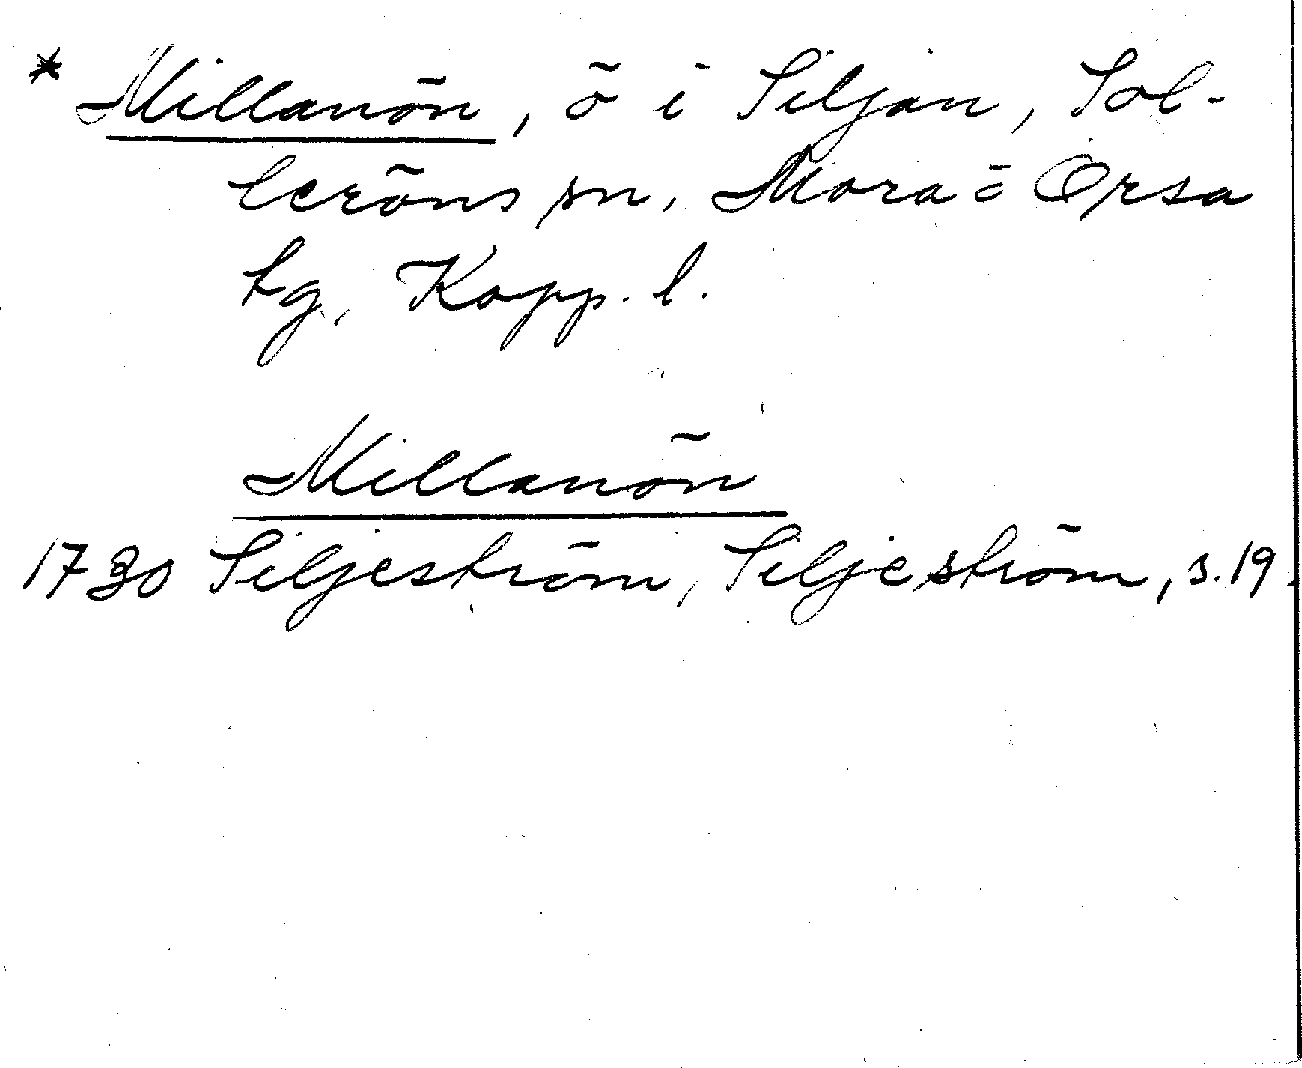 * Millanön, ö i Siljan, Sol-
leröns sn, Mora o Orsa
tg, Kopp. l.
Millanön
1730 Siljeström, Siljeström, s. 19.